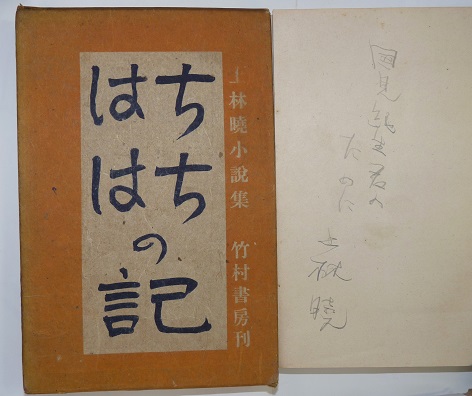 上林曉小說集 竹村書房刊
ちち
はは
の
記
国見純生君の
ために
上林曉